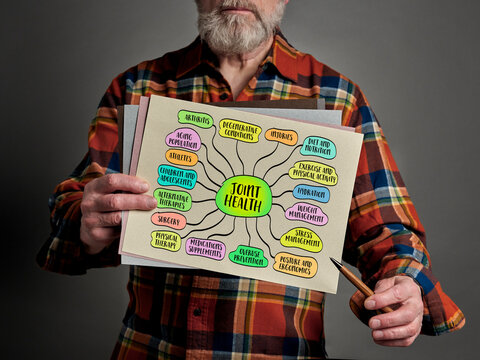 ARTHRITIS
DEGENERATIVE
CONDITIONS
INJURIES
DIET AND
NUTRITION
AGING
POPULATION
ATHLETES
CHILDREN AND
ADOLESCENTS
ALTERNATIVE
THERAPIES
SURGERY
PHYSICAL
THERAPY
JOINT
HEALTH
EXERCISE AND
PHYSICAL ACTIVITY
HYDRATION
WEIGHT
MANAGEMENT
STRESS
MANAGEMENT
MEDICATIONS
SUPPLEMENTS
OVERUSE
PREVENTION
POSTURE AND
ERGONOMICS